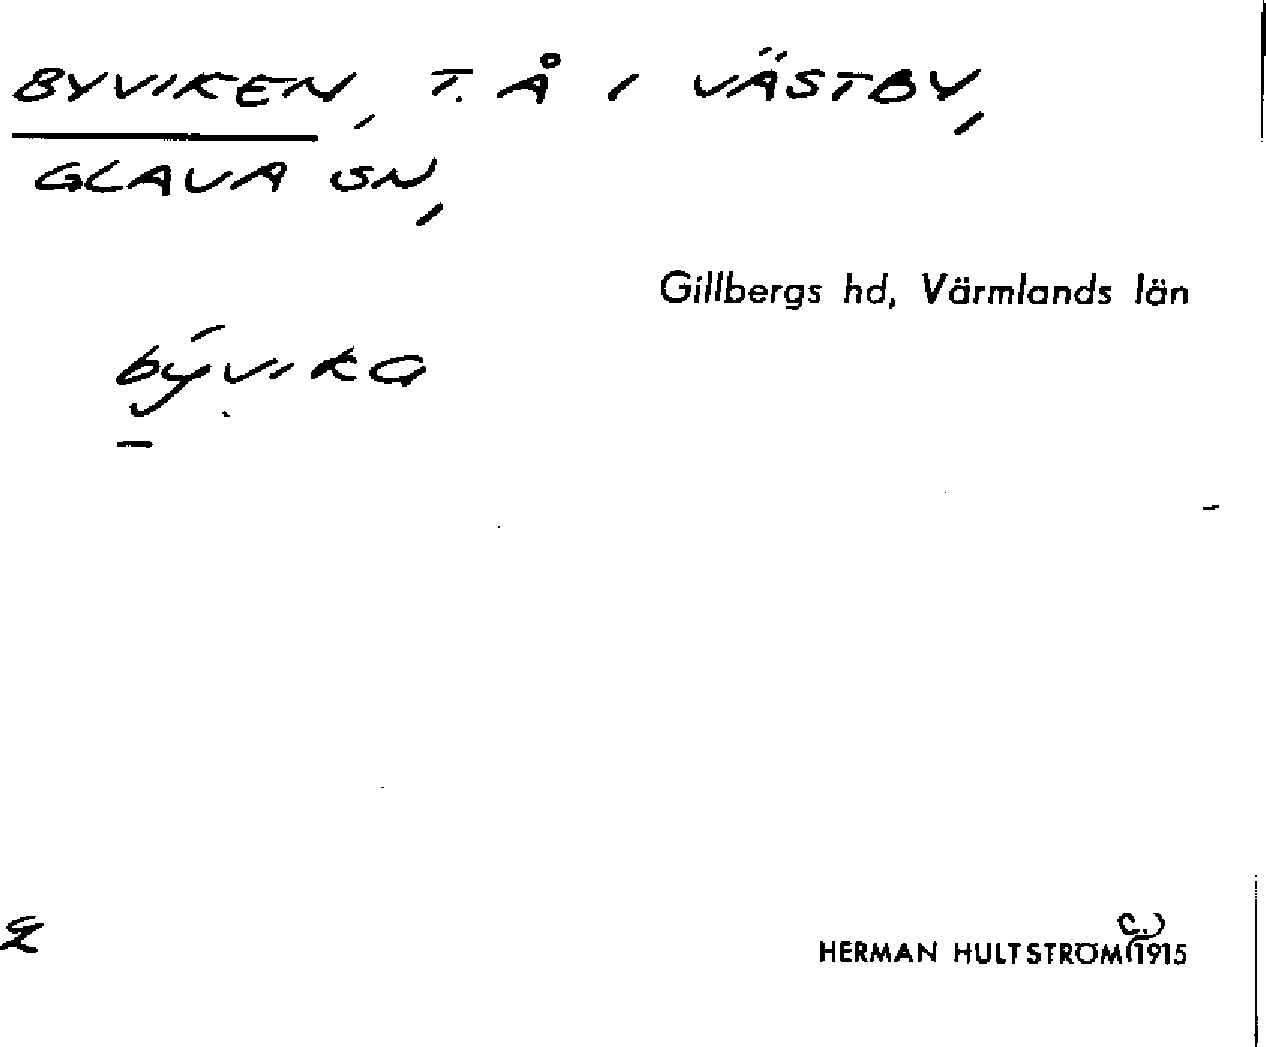 BYVIKEN, T. Å I VÄSTBY,
GLAVA SN,
Gillbergs hd, Värmlands län
bývika
HERMAN HULTSTRÖM (c.) 1915